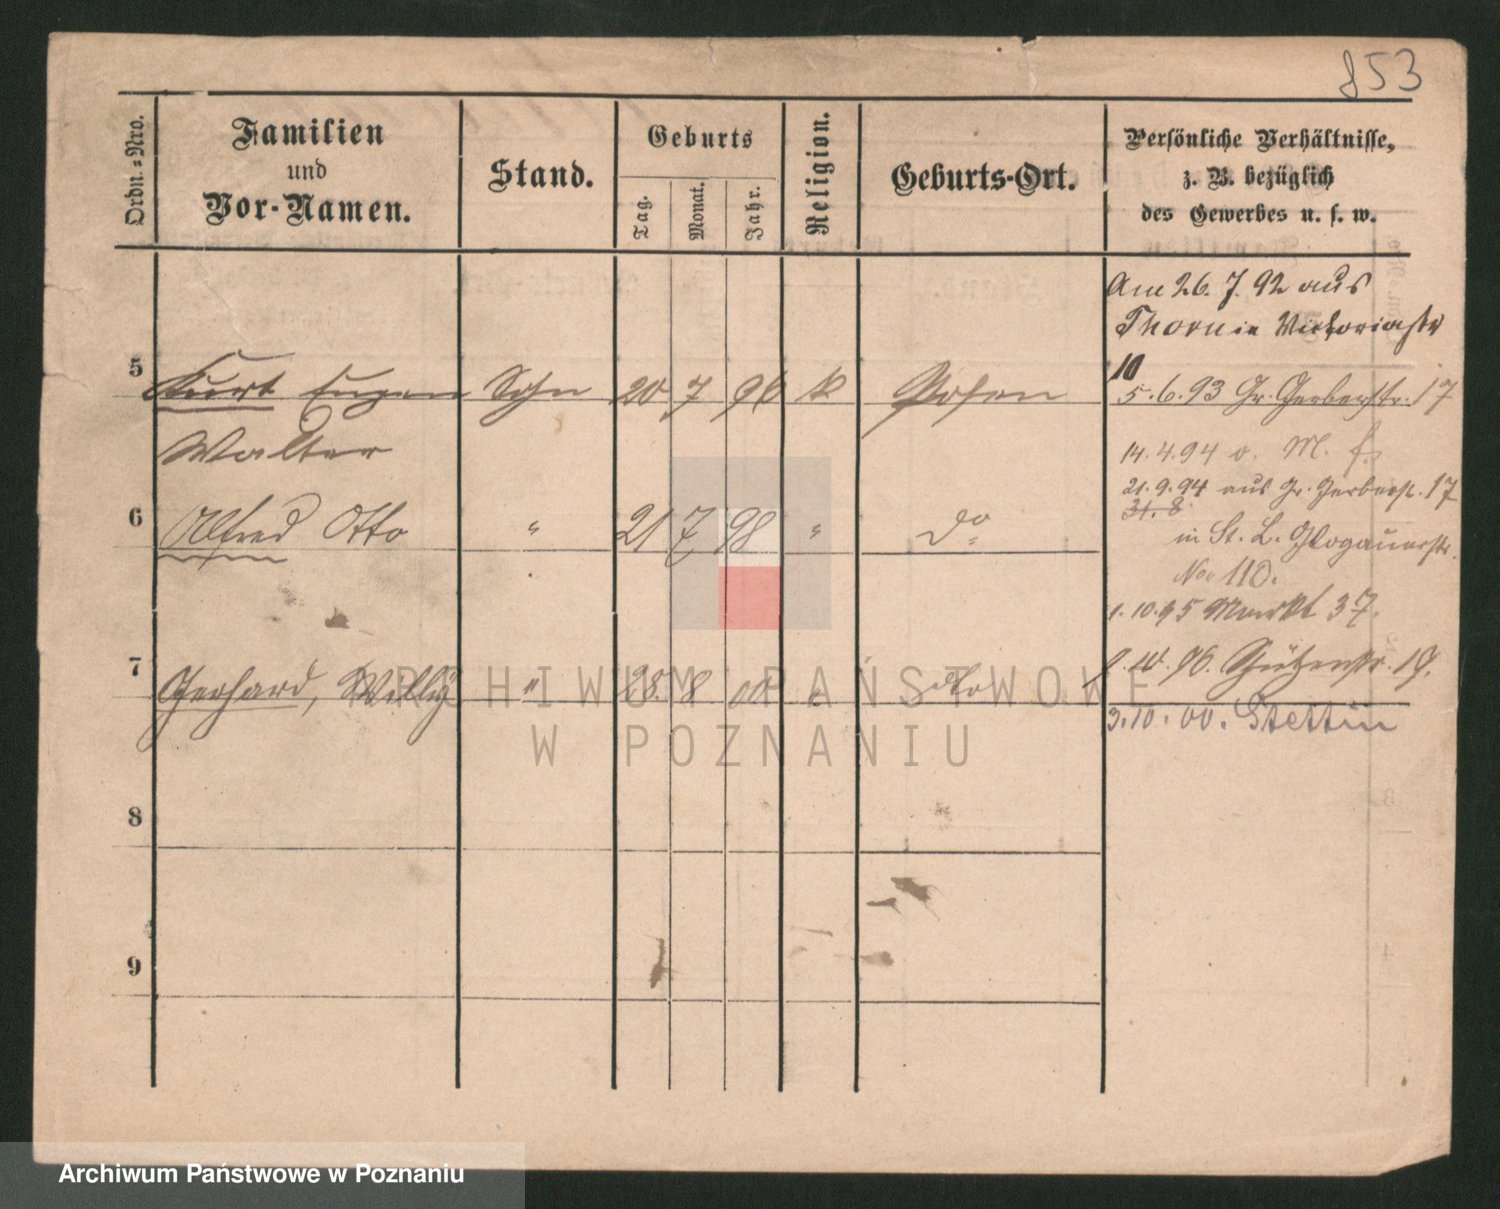 853
Ordn.-Nro.
Familien
und
Vor-Namen.
Stand.
Geburts
Tag.
Monat.
Jahr.
Religion.
Geburts-Ort.
Persönliche Verhältnisse,
z. B. bezüglich
des Gewerbes u. s. w.
Am 26. 7. 92 aus
Thorn in Victoriastr
10
5 Kurt Eugen Sohn 20 7 96 k Posen
Walter
5. 6. 93 Gr. Gerberstr. 17
14. 4. 94 v. M. f.
21. 9. 94 aus Gr. Gerberstr. 17
31. 8.
in St. L. Glogauerstr.
No 110.
6 Alfred Otto " 21 7 98 " do
1. 10. 95 Markt 37.
7 Gerhard, Willy " 28. 8 00 " do
1. 10. 96. Schützenstr. 19.
3. 10. 00. Stettin
8
9
ARCHIWUM PAŃSTWOWE
W POZNANIU
Archiwum Państwowe w Poznaniu